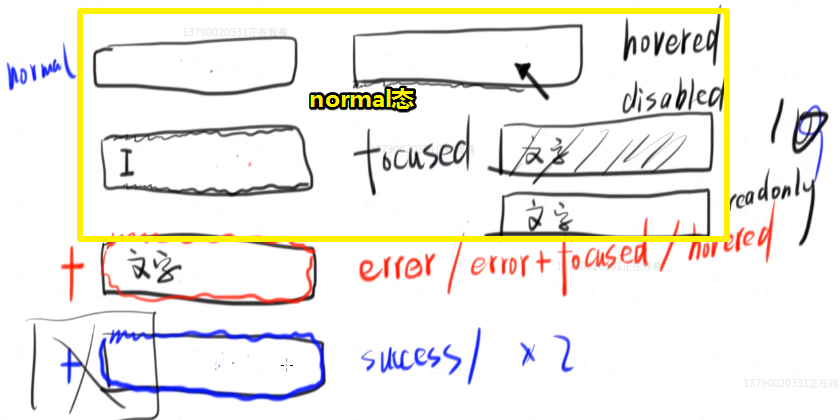 13790020331正在观看
normal
hovered
normal态
disabled
I
focused
文字
10
文字
readonly
+ 文字 error / error+focused / hovered
+ success / × 2
13790020331正在观